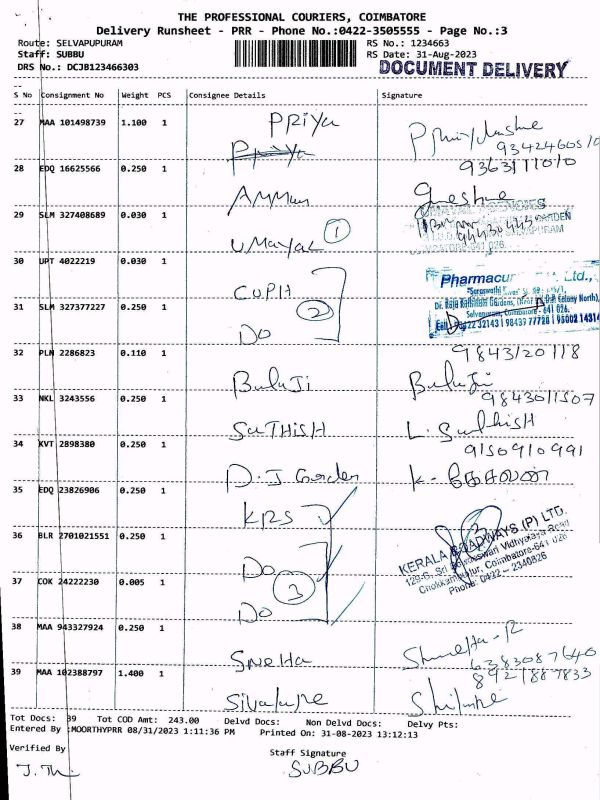 THE PROFESSIONAL COURIERS, COIMBATORE
Delivery Runsheet - PRR - Phone No.:0422-3505555 - Page No.:3
Route: SELVAPUPURAM
RS No.: 1234663
Staff: SUBBU
RS Date: 31-Aug-2023
DRS No.: DCJB123466303
DOCUMENT DELIVERY
S No Consignment No Weight PCS Consignee Details Signature
27 MAA 101498739 1.100 1 PRiya
9342460510
28 EDQ 16625566 0.250 1 Amman
9363111010
29 SLM 327408689 0.030 1 UMayal 1
94430443
641 026.
30 UPT 4022219 0.030 1 CUPH
Ltd.,
31 SLM 327377227 0.250 1 Do 2
Selvapuram, Coimbatore - 641 026.
32143 | 98439 77728 | 95002 14314
32 PLN 2286823 0.110 1 BalaJi
9843120118
33 NKL 3243556 0.250 1 SaTHiSH
9843011507
34 KVT 2898380 0.250 1 D.J Garden
9150910991
35 EDQ 23826906 0.250 1 KRS
36 BLR 2701021551 0.250 1 Do
KERALA ROADWAYS (P) LTD.
Coimbatore-641 026
Phone: 0422 - 2340826
37 COK 24222230 0.005 1 Do 3
38 MAA 943327924 0.250 1 SneHa
6383087640
39 MAA 102388797 1.400 1
8921887833
Tot Docs: 39 Tot COD Amt: 243.00 Delvd Docs: Non Delvd Docs: Delvy Pts:
Entered By :MOORTHYPRR 08/31/2023 1:11:36 PM Printed On: 31-08-2023 13:12:13
Verified By
Staff Signature
SUBBU